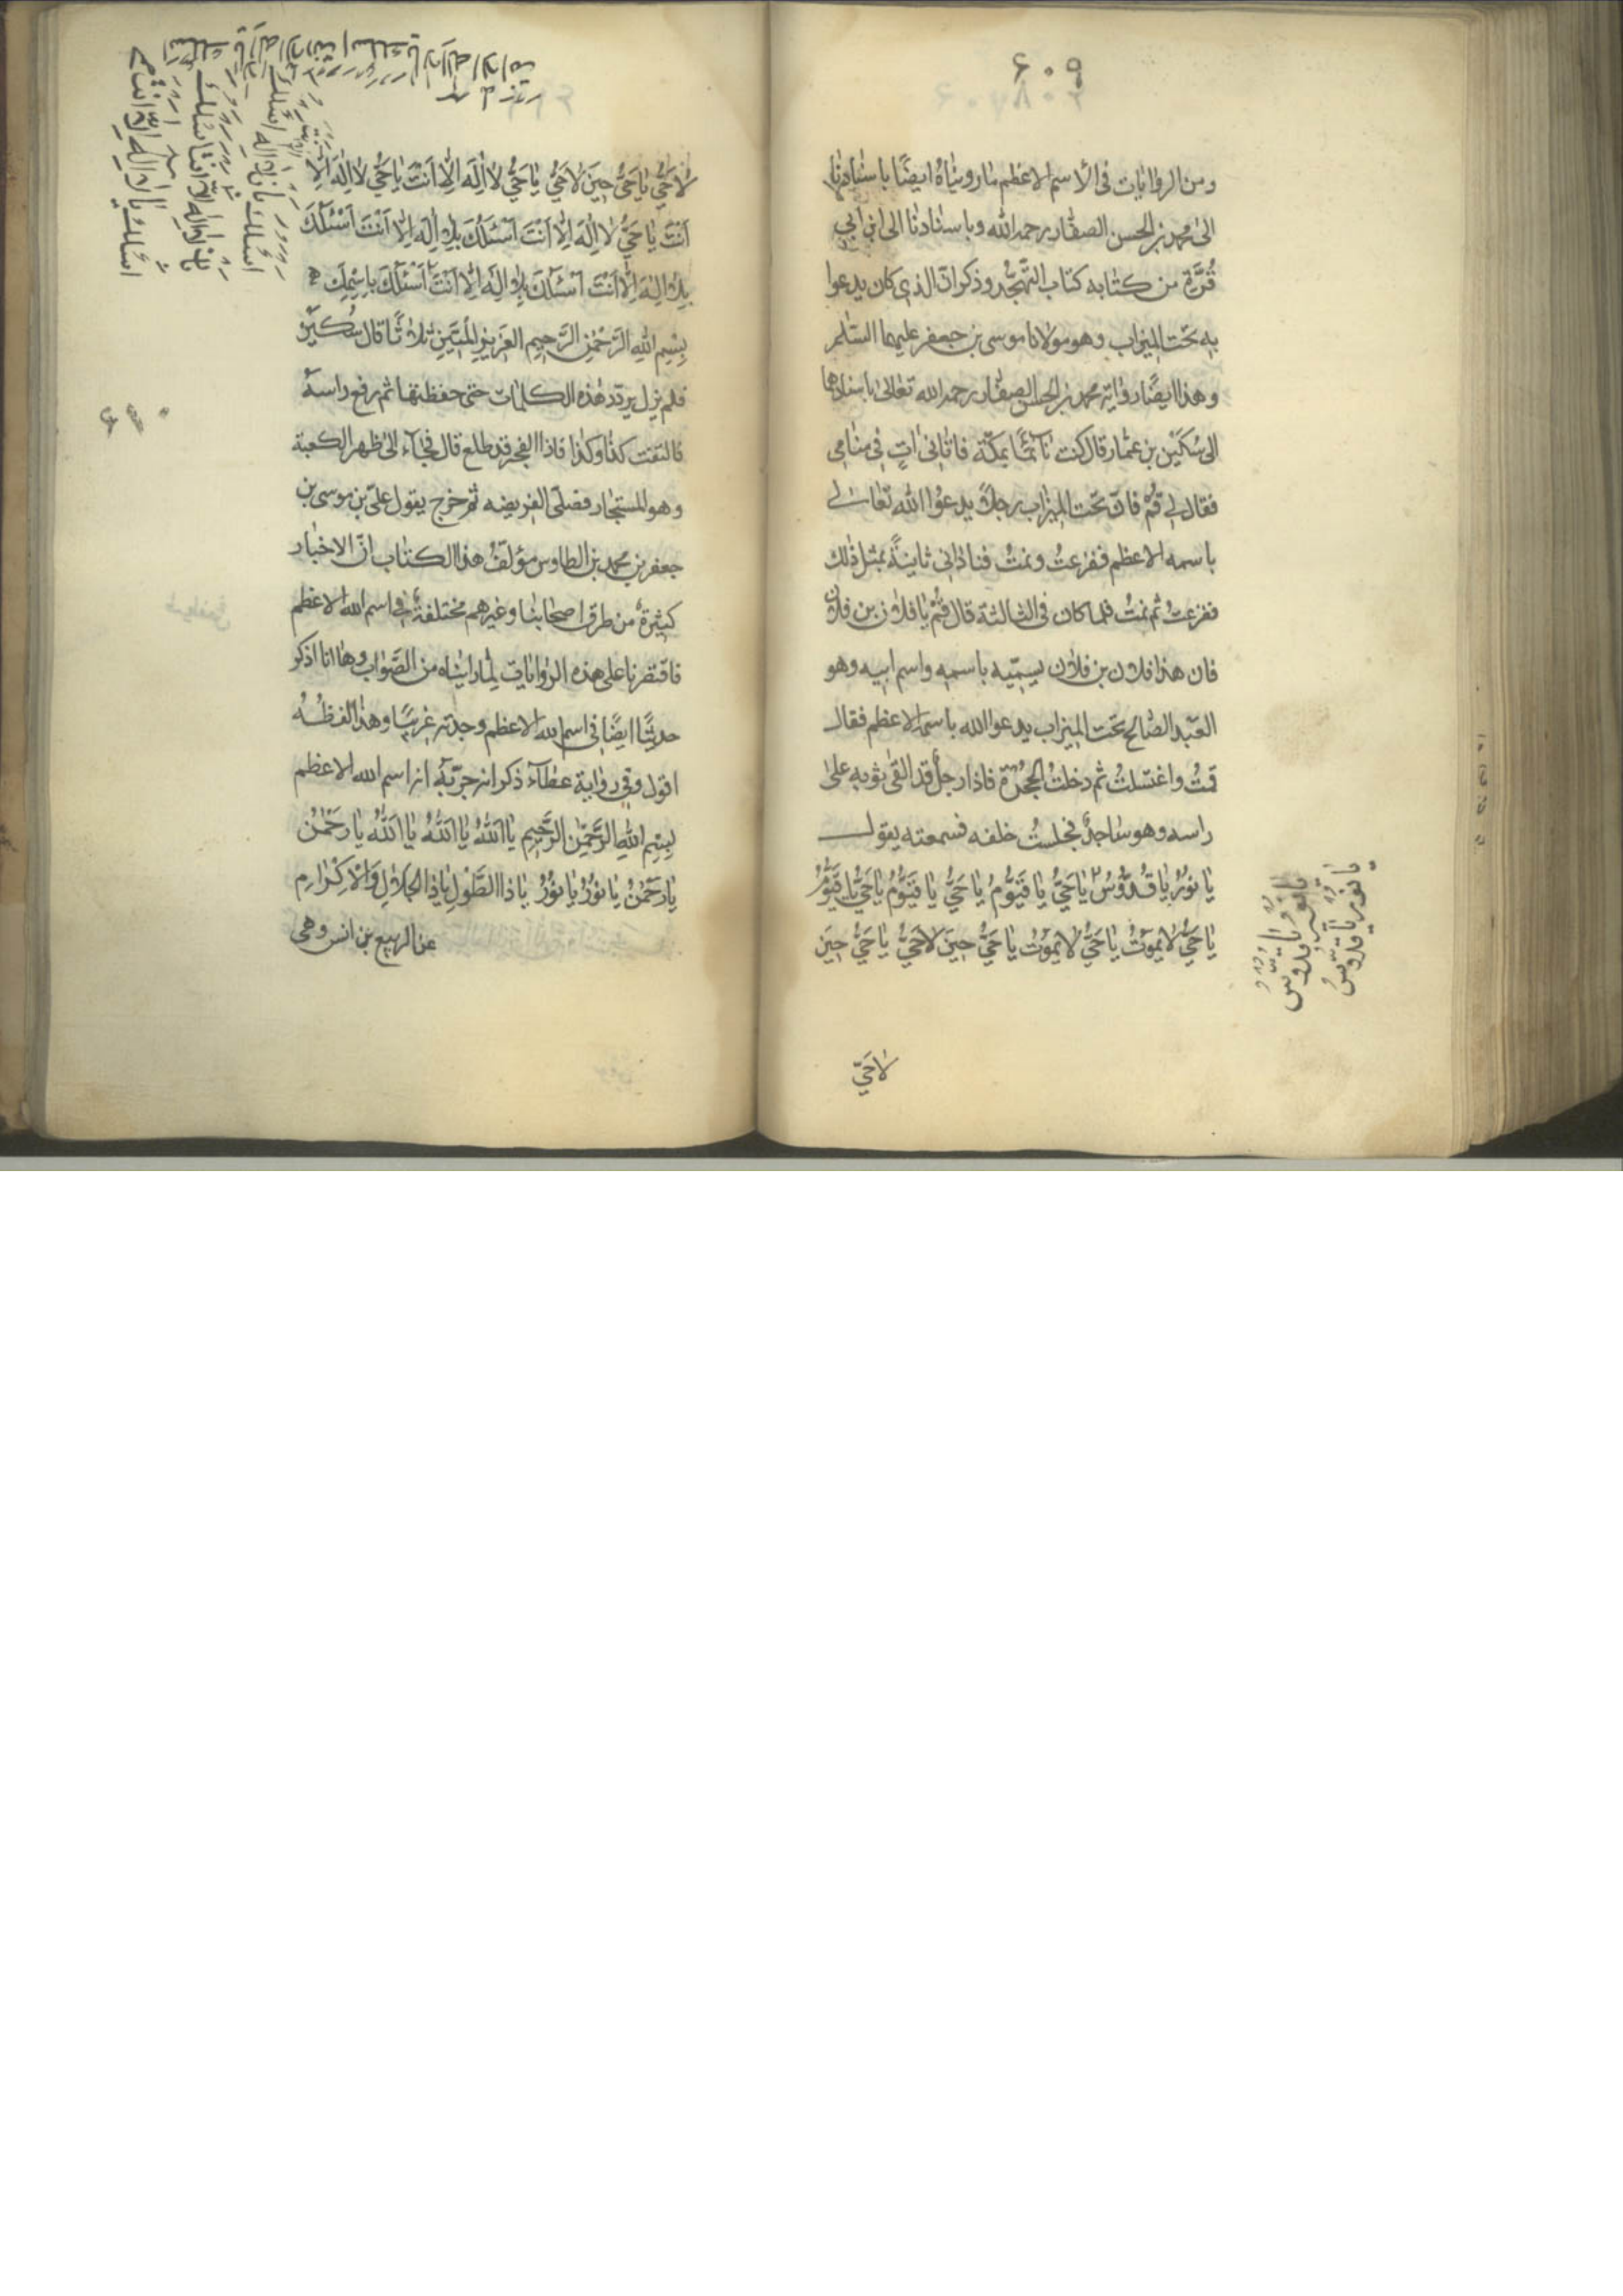 ۶۰۹
۸۰۲
ومن الروايات فى الاسم الاعظم ما رويناه ايضًا باسنادنا
الى محمد بن الحسن الصفار رحمه الله وباسنادنا الى ابن ابي
قُرَّة من كتابه كتاب التهجُّد وذكر انّ الذى كان يدعوا
به تحت الميزاب وهو مولانا موسى بن جعفر عليهما السلم
وهذا ايضًا رواية محمد بن الحسن الصفار رحمه الله تعالى باسنادهما
الى سُكَيْن بن عمار قال كنت نآئمًا بمكّة فاتانى اتٍ فى منامى
فقال لى قُمْ فانّ تحت الميزاب رجلاً يدعوُا الله تعالى
باسمه الاعظم ففزعتُ ونمتُ فنادانى ثانيةً بمثل ذلك
ففزعتُ ثم نمتُ فلما كان فى الثالثة قال قُمْ يا فلان بن فلان
فان هذا فلان بن فلان يسمّيه باسمه واسم ابيه وهو
العبد الصالح تحت الميزاب يدعوا الله باسمه الاعظم فقال
قمتُ واغتسلتُ ثم دخلتُ الحجرة فاذا رجلٌ قد القى ثوبه على
راسه وهو ساجدٌ فجلستُ خلفه فسمعته يقول
يا نُورُ يا قُدُّوسُ يا حَيُّ يا قَيّوُمُ يا حَيُّ يا قَيّوُمُ يا حَيُّ يا قَيّوُمُ
يا حَيُّ لا يَموُتُ يا حَيُّ لا يَموُتُ يا حَيُّ حِينَ لا حَيُّ يا حَيُّ حِينَ
لا حَيّ
يا نور يا قدوس
يا نور يا قدوس
لا حَيُّ يا حَيُّ حِينَ لا حَيُّ يا حَيُّ لا اِلٰهَ اِلّا اَنْتَ يا حَيُّ لا اِلٰهَ اِلّا
اَنْتَ يا حَيُّ لا اِلٰهَ اِلّا اَنْتَ اَسْئَلُكَ بِلا اِلٰهَ اِلّا اَنْتَ اَسْئَلُكَ
بِلا اِلٰهَ اِلّا اَنْتَ اَسْئَلُكَ بِلا اِلٰهَ اِلّا اَنْتَ اَسْئَلُكَ بِاسْمِكَ
بِسْمِ اللهِ الرَّحْمٰنِ الرَّحِيمِ العَزيزِ المُبينِ ثلاثًا قال سُكين
فلم يزل يردد هذه الكلمات حتى حفظتها ثم رفع راسه
فالتفت كذا وكذا فاذا الفجر قد طلع قال فجآء الى ظهر الكعبة
وهو المستجار فصلّى الفريضه ثم خرج يقول علىّ بن موسى بن
جعفر بن محمد بن الطاوس مؤلّفُ هذا الكتاب انّ الاخبار
كثيرة من طرق اصحابنا وغيرهم مختلفةٌ فى اسم الله الاعظم
فاقتصرنا على هذه الروايات لما رايناه من الصَّواب وها انا اذكر
حديثًا ايضًا فى اسم الله الاعظم وجدته غريبًا وهذا لفظُه
اقول وفى رواية عطآء ذكر انه جرّبه انه اسم الله الاعظم
بِسْمِ اللهِ الرَّحْمٰنِ الرَّحِيمِ يا اَللهُ يا اَللهُ يا اَللهُ يا رَحْمٰنُ
يا رَحْمٰنُ يا نُورُ يا نُورُ يا ذا الطَّوْلِ يا ذا الجَلالِ وَالْاِكْرامِ
عن الربيع بن انس وهى